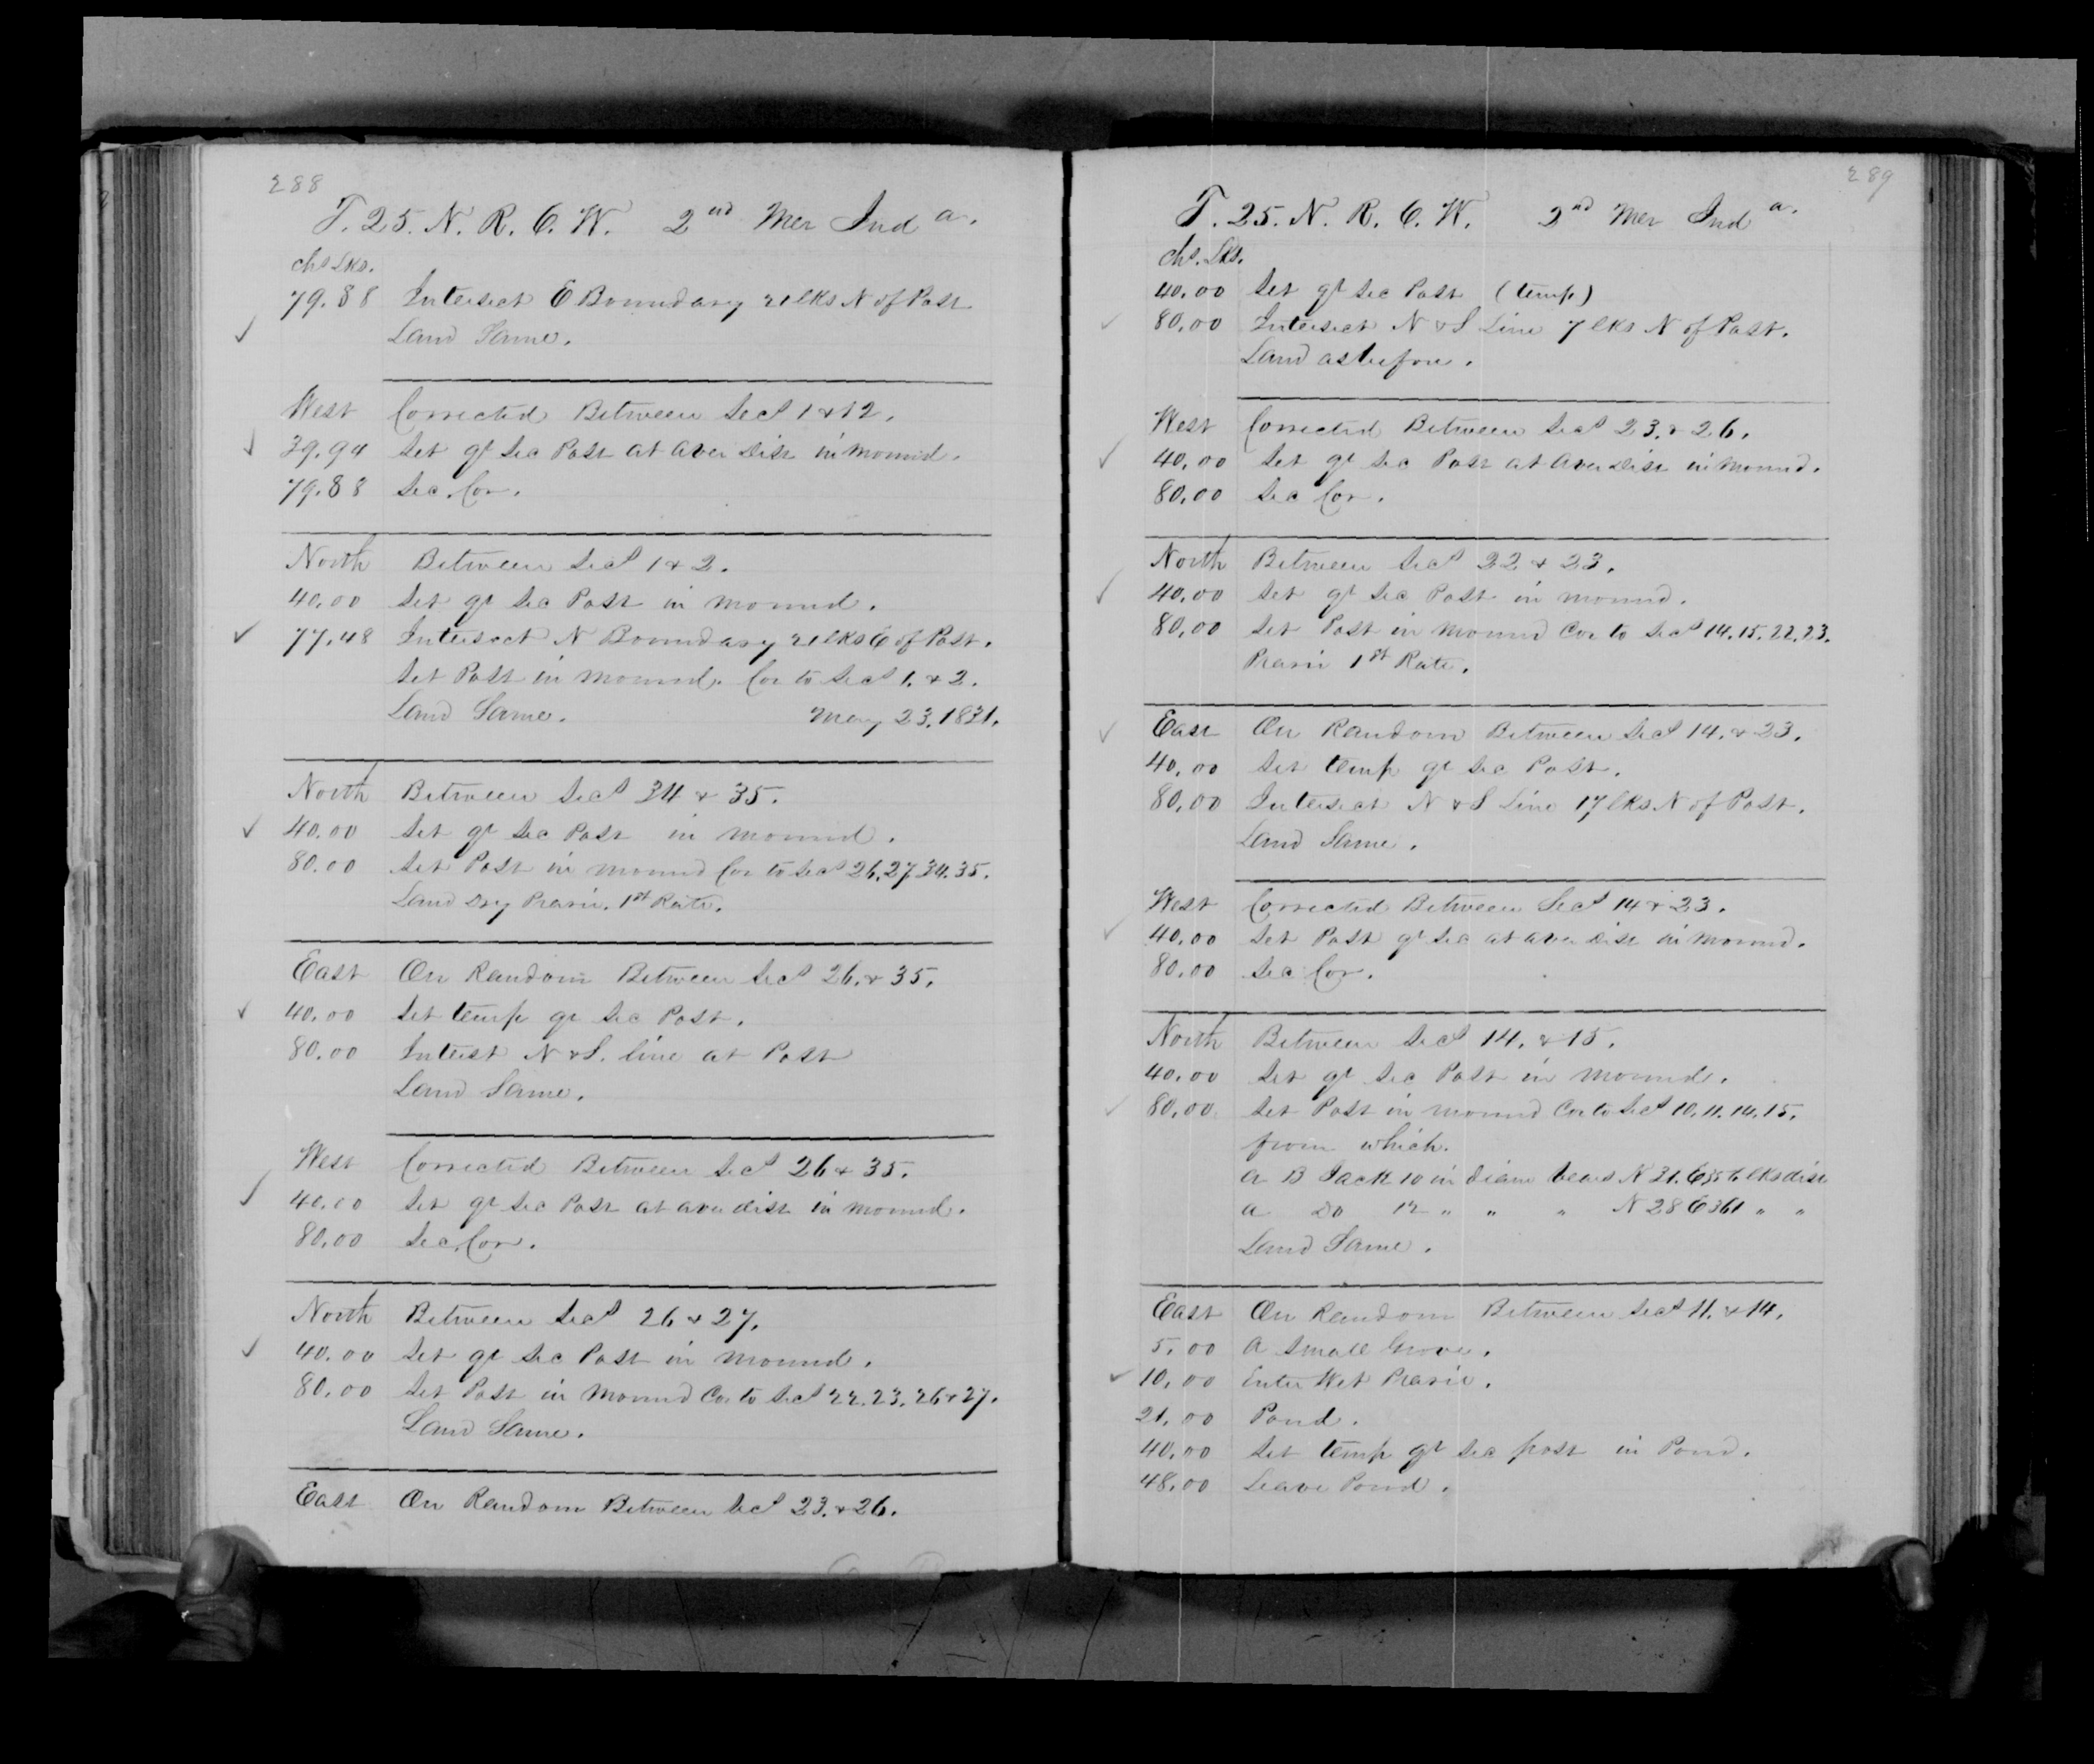 288
T. 25. N. R. 6. W. 2nd Mer Inda.
chs Lks.
79.88 Intersect E Boundary 21 lks N of Post
Land Same.
West Corrected Between Secs 1 & 12.
39.94 Set qr Sec Post at aver Dist in mound.
79.88 Sec. Cor.
North Between Secs 1 & 2.
40.00 Set qr Sec Post in mound.
77.48 Intersect N Boundary 21 lks E of Post.
Set Post in mound. Cor to Secs 1. & 2.
Land Same. May 23. 1831.
North Between Secs 34 & 35.
40.00 Set qr Sec Post in mound.
80.00 Set Post in mound Cor to Secs 26.27.34.35.
Land Dry Prarie. 1st Rate.
East On Random Between Secs 26. & 35.
40.00 Set temp qr Sec Post.
80.00 Interst N & S. line at Post
Land Same.
West Corrected Between Secs 26 & 35.
40.00 Set qr Sec Post at aver dist in mound.
80.00 Sec. Cor.
North Between Secs 26 & 27.
40.00 Set qr Sec Post in mound.
80.00 Set Post in Mound Cor to Secs 22.23.26 & 27.
Land Same.
East On Random Between Secs 23. & 26.
289
T. 25. N. R. 6. W. 2nd Mer Inda.
chs. Lks.
40.00 Set qr Sec Post (temp)
80.00 Intersect N & S Line 7 lks N of Post.
Land as before.
West Corrected Between Secs 23. & 26.
40.00 Set qr Sec Post at Aver Dist in Mound.
80.00 Sec Cor.
North Between Secs 22 & 23.
40.00 Set qr Sec Post in mound.
80.00 Set Post in Mound Cor to Secs 14.15.22.23.
Prarie 1st Rate.
East On Random Between Secs 14. & 23.
40.00 Set temp qr Sec Post.
80.00 Intersect N & S Line 17 lks N of Post.
Land Same.
West Corrected Between Secs 14 & 23.
40.00 Set Post qr Sec at aver Dist in Mound.
80.00 Sec Cor.
North Between Secs 14. & 15.
40.00 Set qr Sec Post in Mound.
80.00 Set Post in mound Cor to Secs 10.11.14.15.
from which.
A B Jack 10 in diam bears N 31. E lks dist
A Do 12 " " " N 28 E 361 " "
Land Same.
East On Random Between Secs 11. & 14.
5.00 A Small Grove.
10.00 Enter Wet Prarie.
21.00 Pond.
40.00 Set temp qr Sec post in Pond.
48.00 Leave Pond.